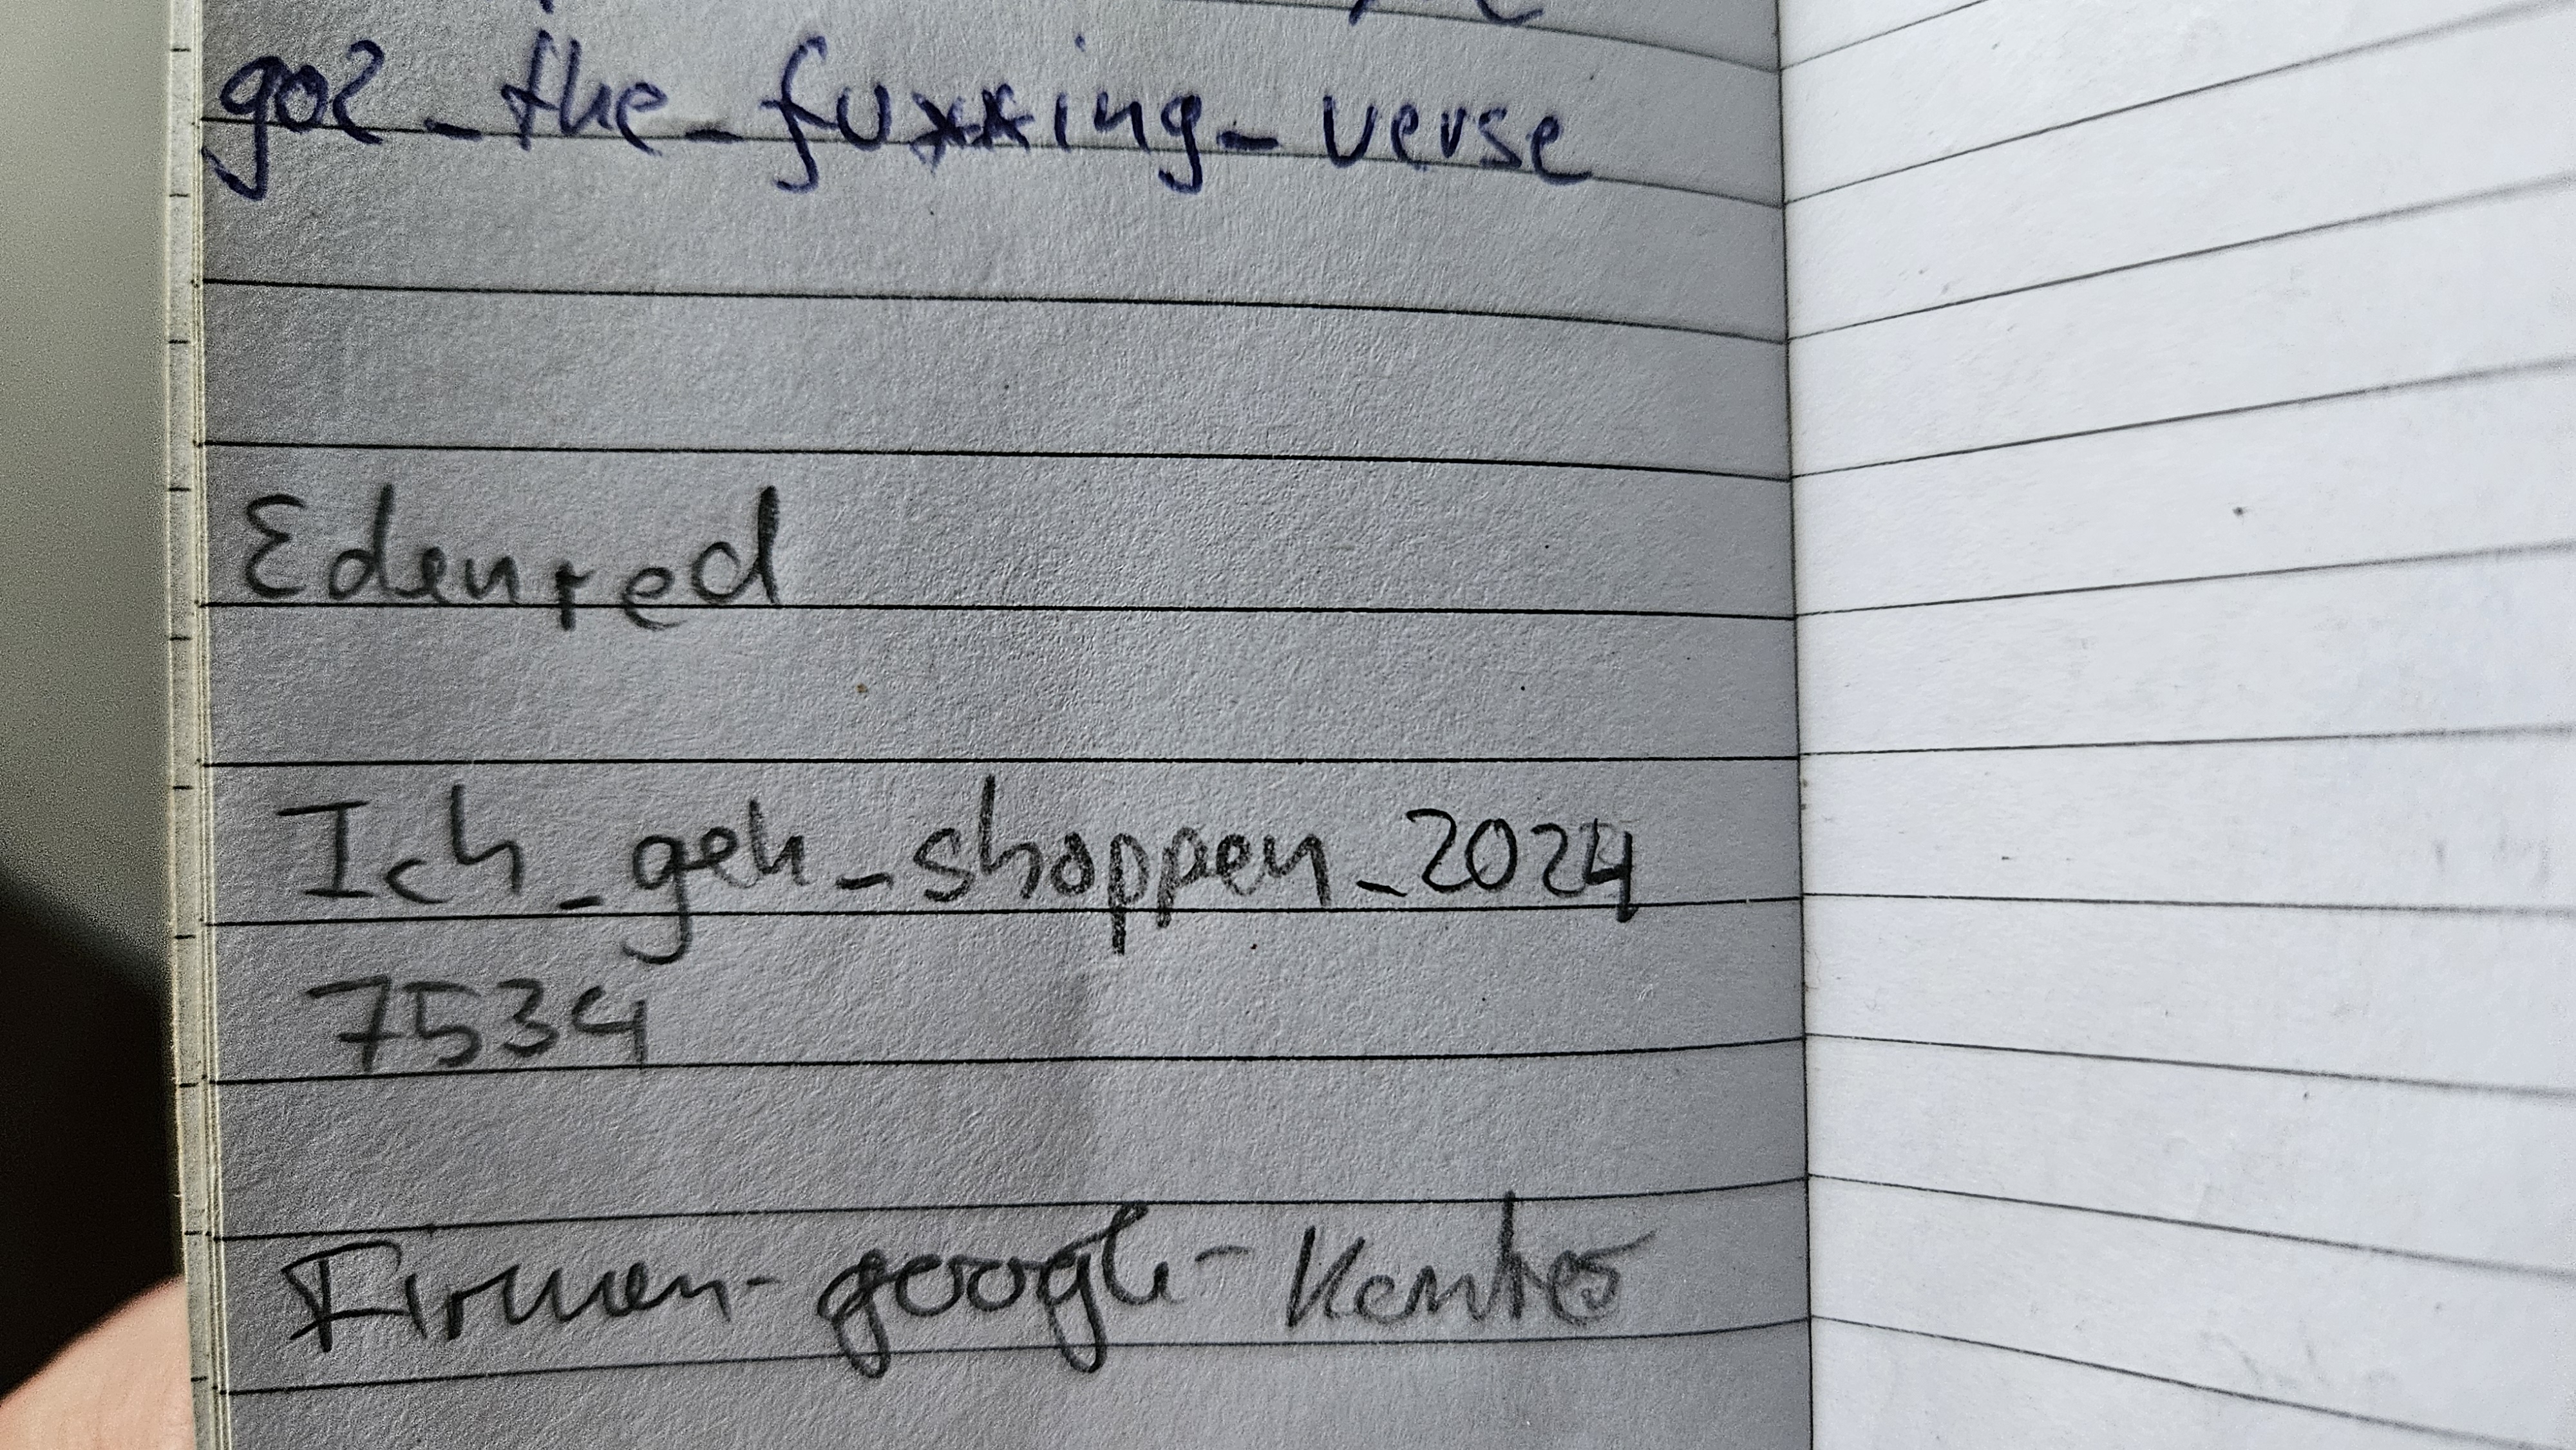 go2_the_fuxxing_verse
Edenred
Ich_geh_shoppen_2024
7534
Firmen-google-Konto